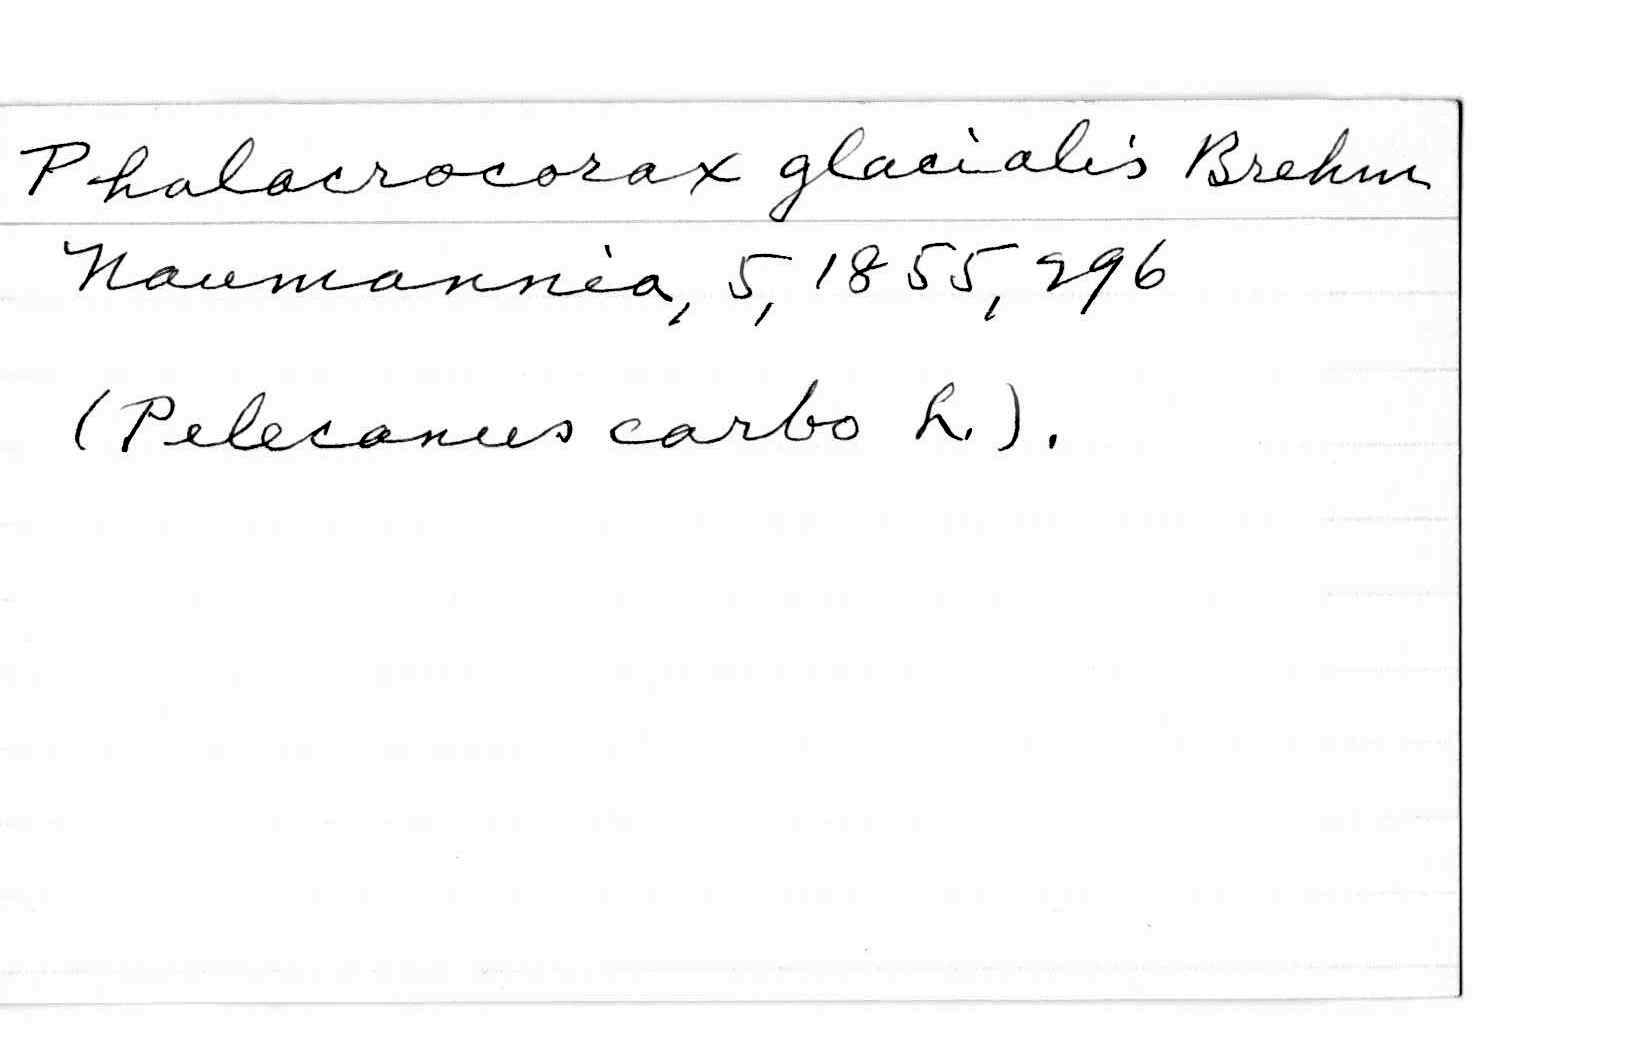 Phalacrocorax glacialis Brehm
Naumannia, 5, 1855, 296
(Pelecanus carbo L.).